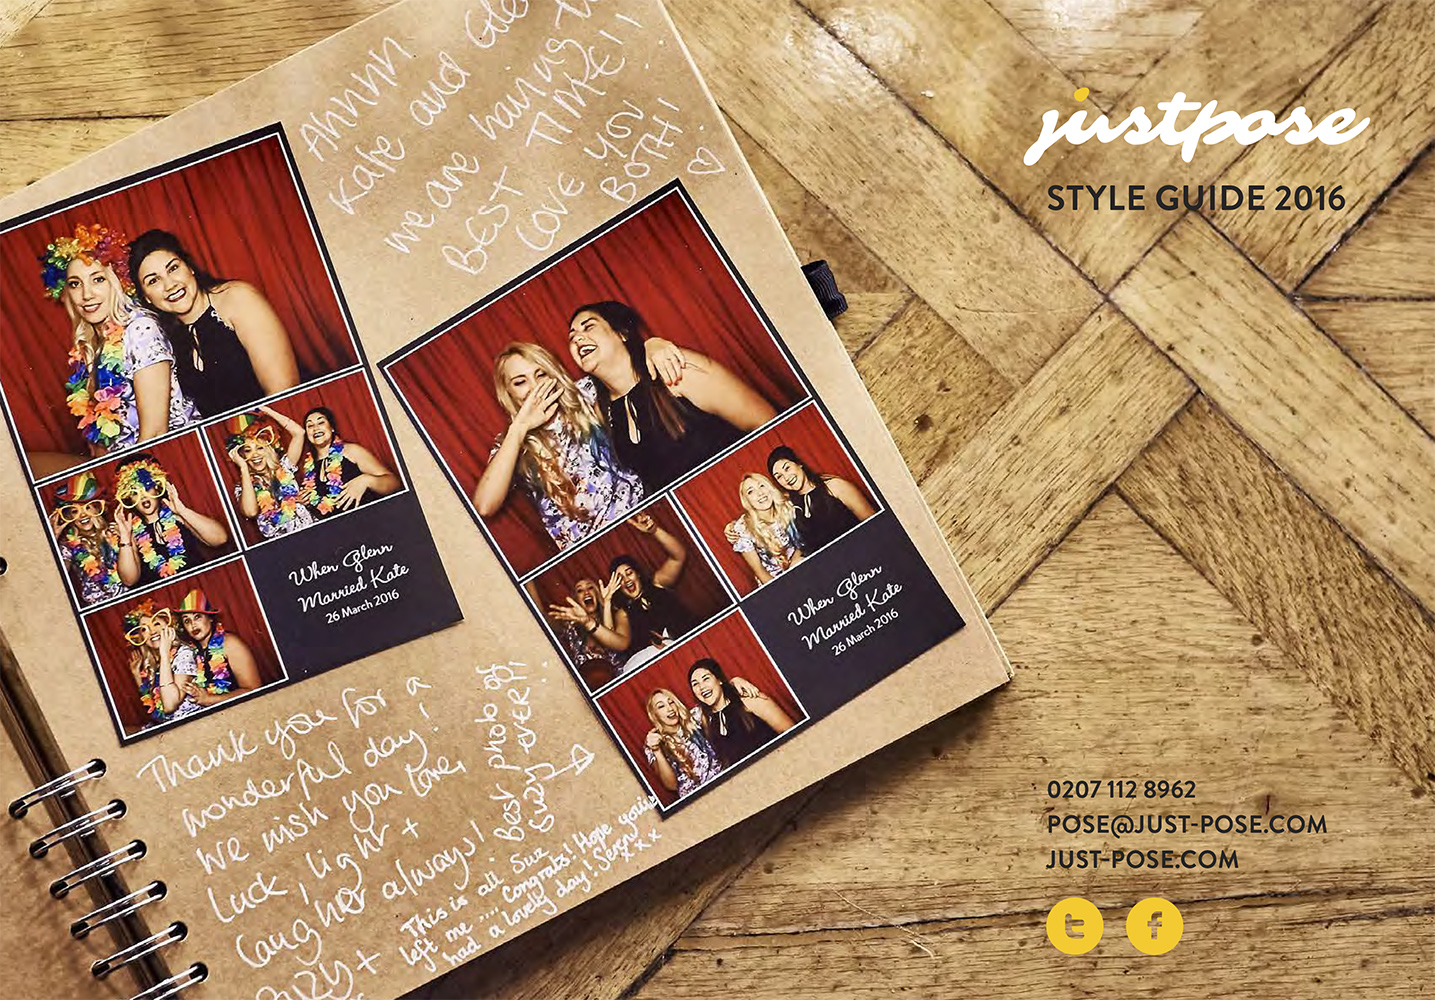 Ahhhh
Kate and Gle
we are having
BEST TIME!!
LOVE YOU
BOTH!
justpose
STYLE GUIDE 2016
When Glenn
Married Kate
26 March 2016
When Glenn
Married Kate
26 March 2016
Thank you for a
wonderful day!
We wish you love,
luck, light +
laughter always!
Best photo of
Suzy EVER!!
This is all Suz
left me .... Congrats! Hope you
had a lovely day!
xxx
0207 112 8962
POSE@JUST-POSE.COM
JUST-POSE.COM